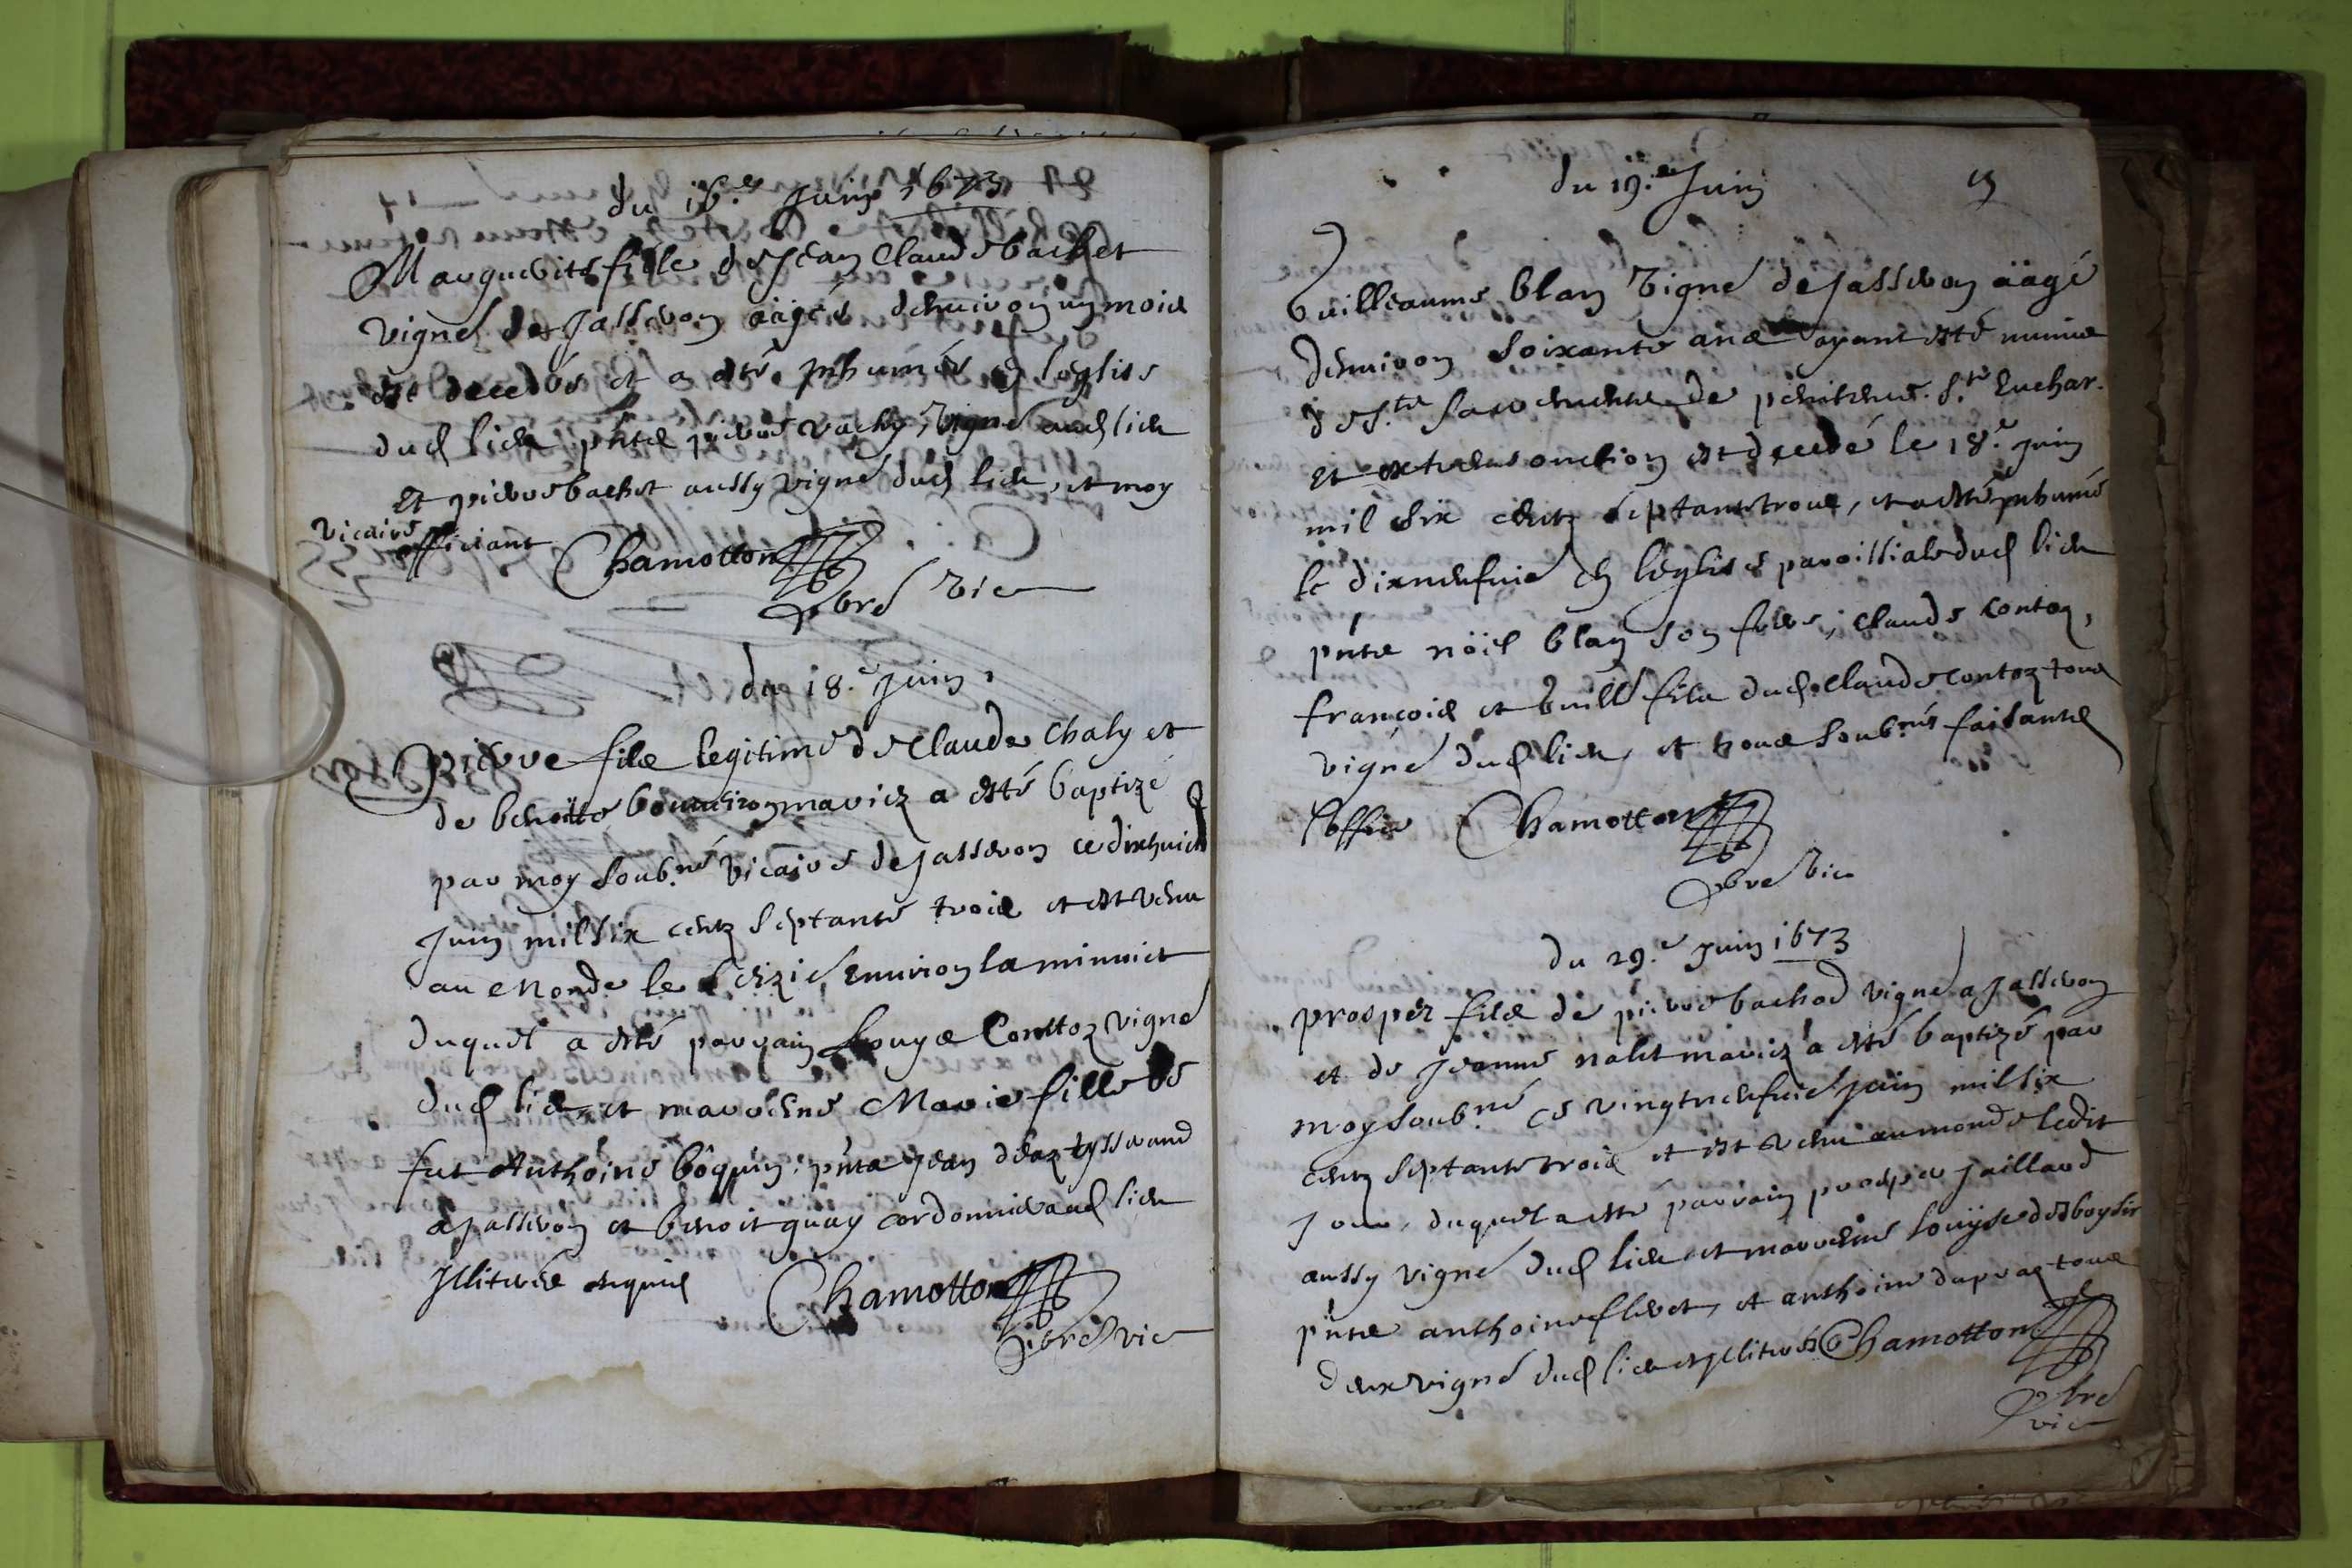 du 16.e Juin 1673
Marguerite fille de Jean Claude bachet
vigner de Jasseron aägée denuiron un moid
est decedée et a esté inhumée en l'eglise
dud lieu pñts pierre vachy, vigner aud lieu
et pierre bachet aussy vigner dud lieu, et moy
vicaire
officiant Chamotton
pbre vic
du 18.e Juin
pierre fils legitime de Claude Chaly et
de benoitte mariez a esté baptizé
par moy soub.né vicaire de Jasseron ce dixhuict
Juin mil six centz septante trois et est venu
au monde le seizie, enuiron la minuict
duquel a esté parrain Louys Conttoz vigner
dud lieu, et marreine Marie fille de
fut Anthoine bôquin, pñts Jean tysserand
a Jasseron et benoit guay cordonnier aud lieu
Illiterés enquis Chamotton
pbre vic
du 19.e Juin
Guilleaume blan vigner de Jasseron aägé
denuiron soixante ans ayant esté munis
des s.ts sacremens de penitence. s.te Euchar.
et extreme onction est decedé le 18.e Juin
mil six centz septante trois, et a esté inhumé
le dixneufuie en l'eglise paroissiale dud lieu
pñts nöel blan son frere, Claude Contoz,
françois et Guill fils dud. Claude Contoz tous
vigner dud lieu, et nous soub.nés faisants
l'office Chamotton
pbre vic
du 29.e Juin 1673
prosper fils de pierre bachod vigner a Jasseron
et de Jeanne nalet mariez a esté baptizé par
moy soub.né ce vingtneufuie Juin mil six
centz septante trois et est venu au monde ledit
Jour, duquel a esté parrain prosper Jaillard
aussy vigner dud lieu et marreine Louyse
pñts anthoine et anthoine duprat tous
deux vigner dud lieu illiterés Chamotton
pbre
vic